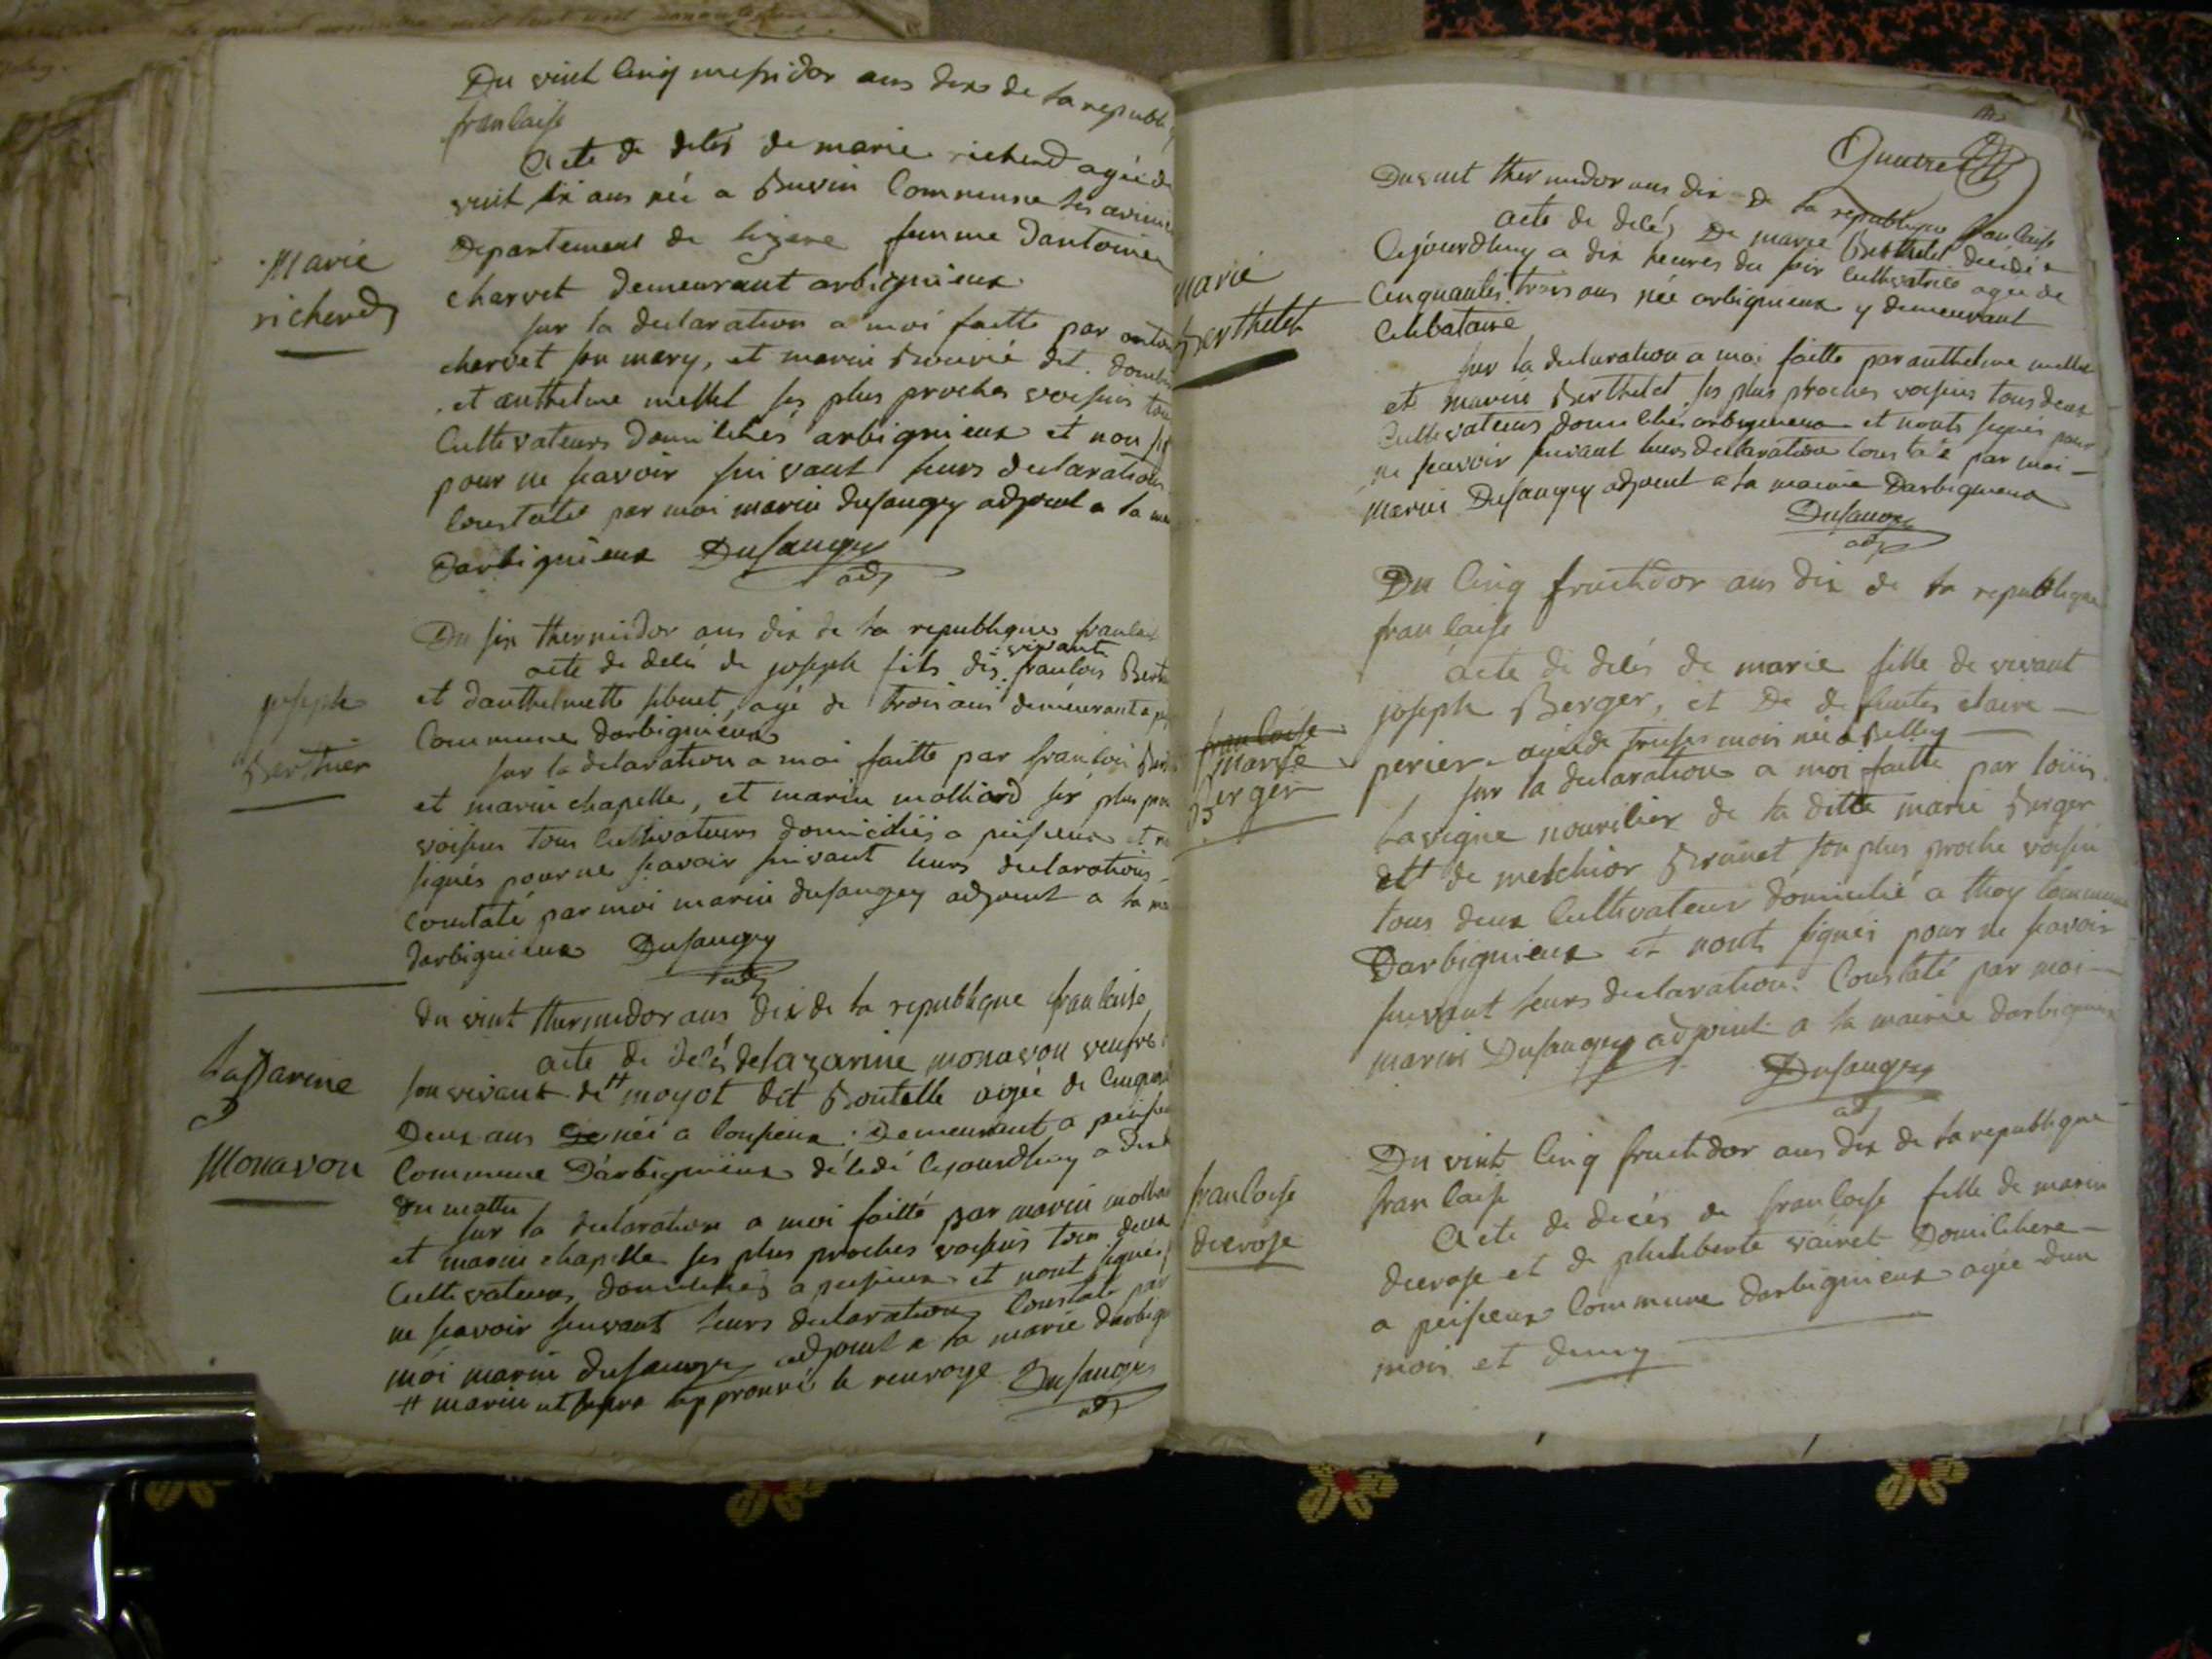 Du vint cinq messidor ans dix de la republi
francaise
Acte de décés de marie richerd agée de
vint six ans née a Buvin Commune les avinie
Departement de lizere femme dantoine
charvet demeurant arbignieux
Marie
richerd
sur la declaration a moi faitte par antoi
charvet son mary, et marin Bouvié dit
et anthelme mellet ses plus proches voisins tou
Cultivateurs domiciliés arbignieux et non si
pour ne scavoir suivant leurs declarations
Constaté par moi marin dusaugey adjoint a la ma
Darbignieux Dusaugey
adj
Du six thermidor ans dix de la republique francai
acte de décé de joseph fils des vivants francois Bert
et danthelmette sibuet, agé de trois ans demeurant a p
Commune darbignieux
joseph
Berthier
sur la declaration a moi faitte par francois Ber
et marin chapelle, et marin molliard ses plus pro
voisins tous Cultivateurs domiciliés a peisieux et n
signés pour ne scavoir suivant leurs declarations
Constaté par moi marin dusaugey adjoint a la ma
darbignieux Dusaugey
adj
du vint thermidor ans dix de la republique francaise
acte de décés de lazarine monavon veufve
son vivant de # moyot dit Boutelle agée de cinqua
Deux ans De née a Conzieux Demeurant a peisieu
Commune Darbignieux décédé cejourdhuy a dix
du mattin
Lazarine
Monavon
sur la declaration a moi faitté par marin molliar
et marin chapelle ses plus proches voisins tous deux
Cultivateurs domiciliés a peisieux et nont signés
ne scavoir suivant leurs declarations Constaté par
moi marin dusaugey adjoint a la marie darbig
# marin ut supra approuvé le renvoye Dusaugey
adj
Quatre
Du vint thermidor ans dix de la republique francaise
acte de décés De marie Berthelet décédé
Cejourdhuy a dix heures du soir Cultivatrice agée de
Cinquantes trois ans née arbignieux y demeurant
Celibataire
marie
Berthelet
sur la declaration a moi faitte par anthelme mellet
et marin Berthelet ses plus proches voisins tous deux
Cultivateurs domiciliés arbignieux et nonts signés pour
ne scavoir suivant leurs declaration Constaté par moi
marin Dusaugey adjoint a la mairie Darbignieux
Dusaugey
adj
Du Cinq fructidor ans dix de la republique
francaise
acte de décés de marie fille de vivant
joseph Berger, et De défuntes claire
perier agée de treises mois née a Belley
francoise
marie
Berger
sur la declaration a moi faitte par louis
Lavigne nouricier de la ditte marie Berger
ett de melchior Brunet son plus proche voisin
tous deux Cultivateur domicilié a thoy Commune
Darbignieux et nonts signés pour ne scavoir
suivant leurs declaration Constaté par moi
marin Dusaugey adjoint a la mairie darbignieux
Dusaugey
adj
Du vint Cinq fructidor ans dix de la republique
francaise
Acte de décés de francoise fille de marin
decrose et de philiberte vairet Domiciliere
a peisieux Commune darbignieux agée dun
mois et demy
francoise
decrose